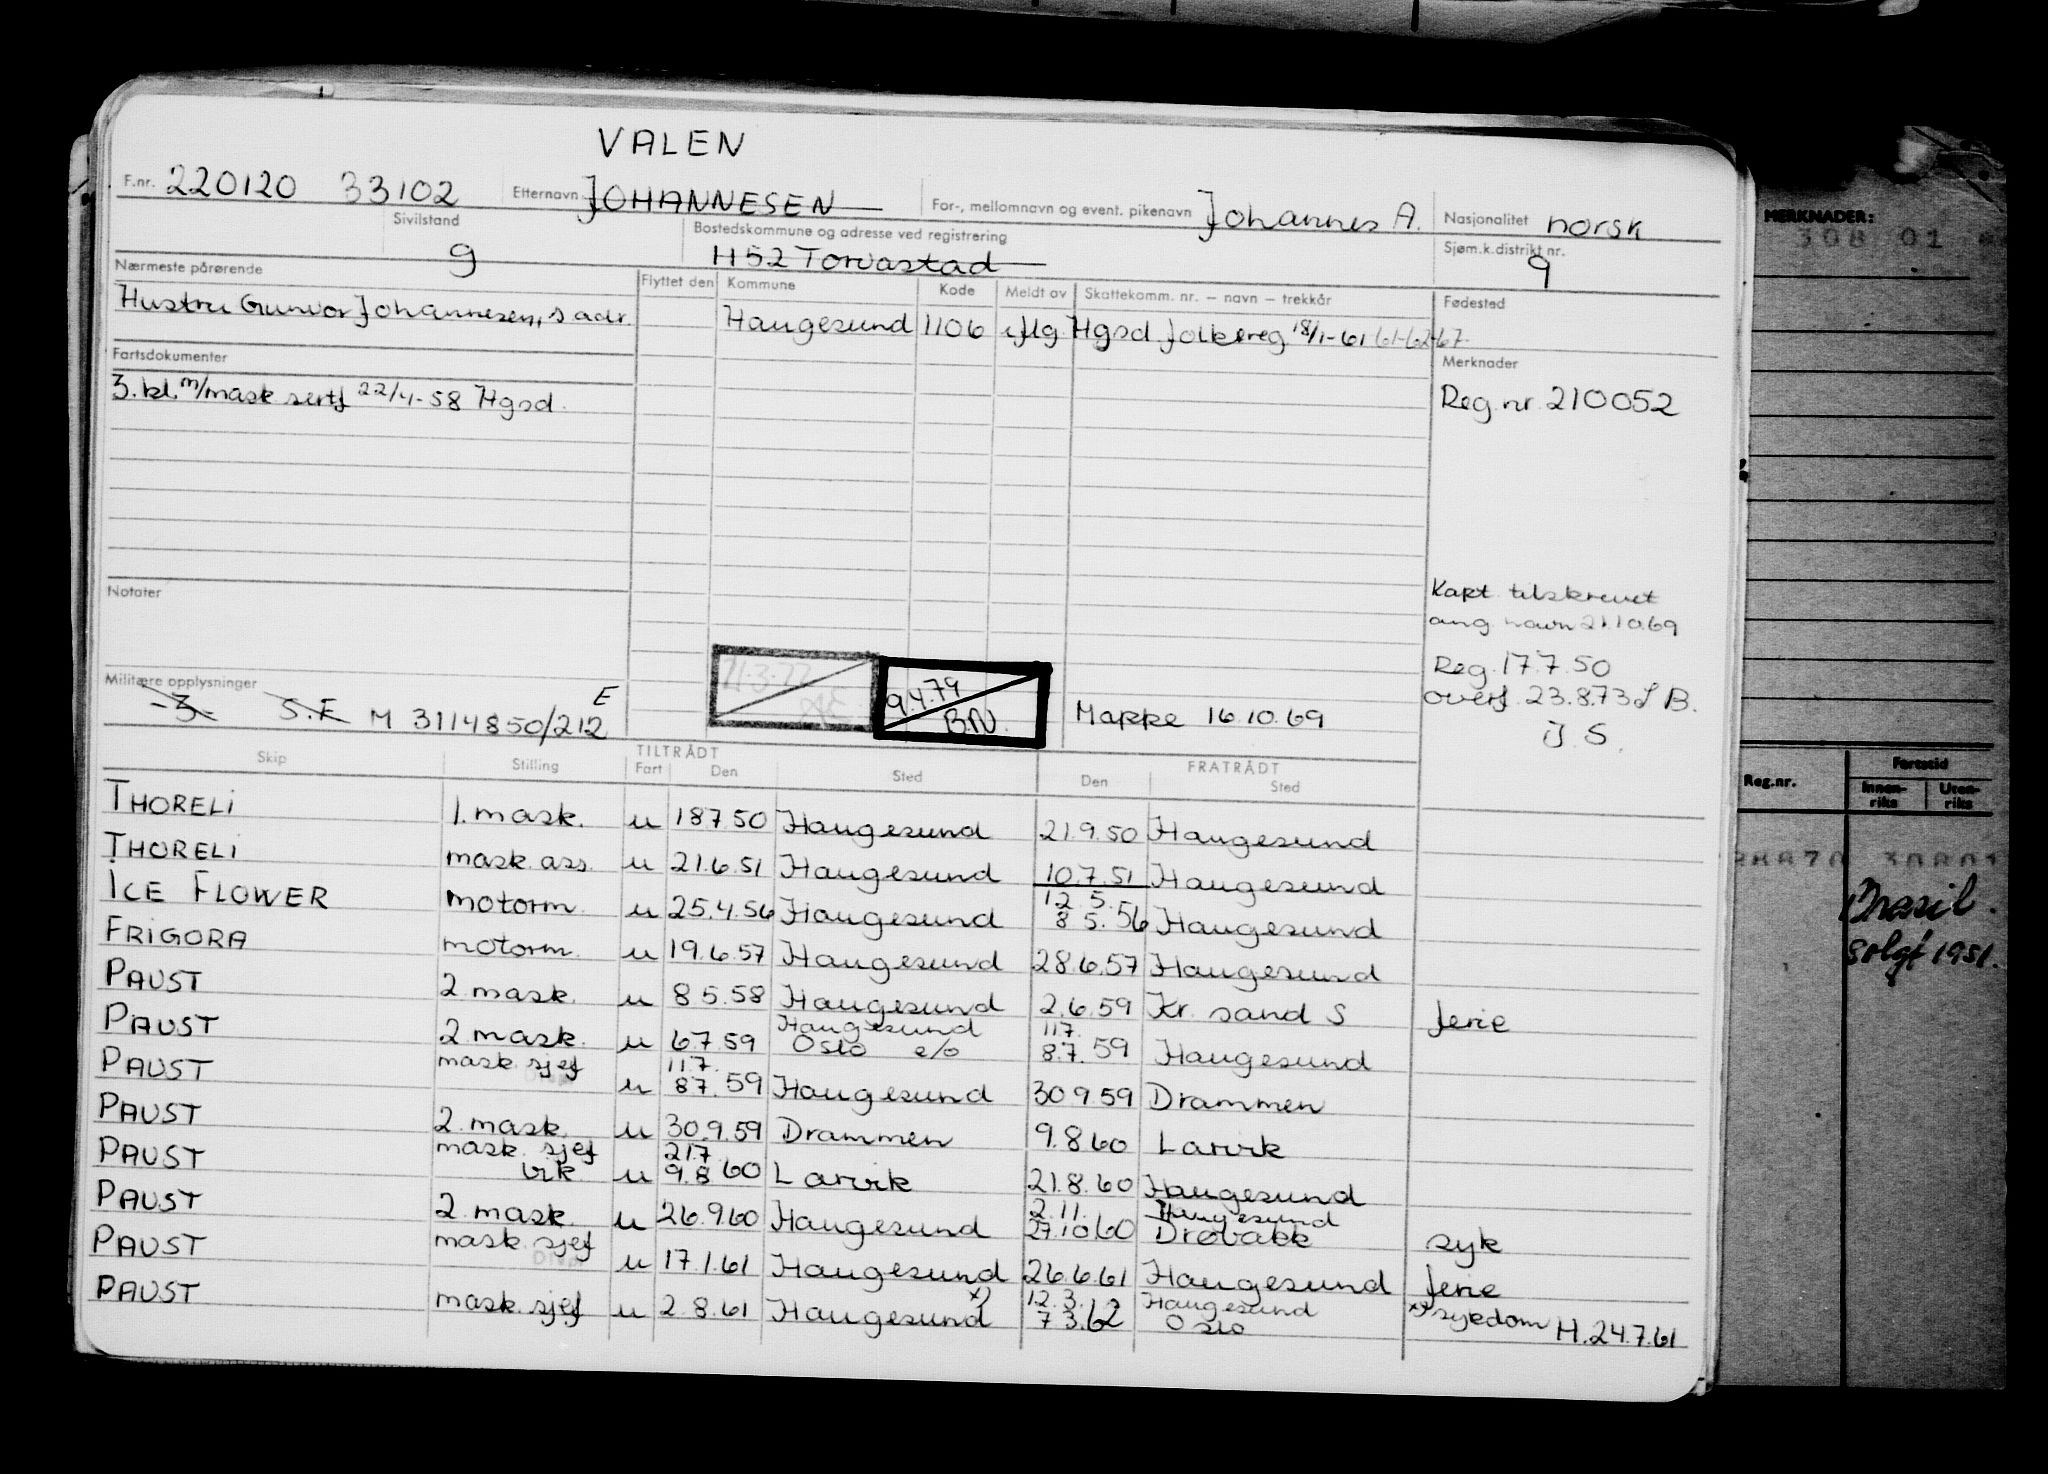 VALEN
F.nr. 220120 33102 Etternavn JOHANNESEN For-, mellomnavn og event. pikenavn Johannes A. Nasjonalitet norsk
Sivilstand 9 Bostedskommune og adresse ved registrering H52 Torvastad Sjøm.k.distrikt nr. 9
Nærmeste pårørende Flyttet den Kommune Kode Meldt av Skattekomm. nr. – navn – trekkår Fødested
Hustru Gunvor Johannesen, s adr. Haugesund 1106 Hgsd folkereg 18/1-61 61-62-67
Fartsdokumenter Merknader
3. kl. m/mask sertf 22/4-58 Hgsd. Reg. nr. 210052
Notater
Kart tilskrevet
ang. navn 21.10.69
Reg. 17.7.50
overf. 23.8.73 J B.
J S.
Militære opplysninger
-3- S.F M 3114850/212 E
9.4.79
B.N.
Mappe 16.10.69
Skip Stilling TILTRÅDT Fart Den Sted FRATRÅDT Den Sted
THORELI 1. mask. u 18750 Haugesund 21.9.50 Haugesund
THORELI mask. ass. u 21.6.51 Haugesund 10.7.51 Haugesund
ICE FLOWER motorm. u 25.4.56 Haugesund 12.5. 8 5.56 Haugesund
FRIGORA motorm. u 19.6.57 Haugesund 28.6.57 Haugesund
PAUST 2. mask. u 8 5.58 Haugesund 2.6.59 Kr. sand S ferie
PAUST 2. mask. u 67.59 Haugesund Oslo e/o 11.7. 8.7.59 Haugesund
PAUST mask sjef u 11.7. 87.59 Haugesund 30.9.59 Drammen
PAUST 2. mask. u 30.9.59 Drammen 9.8.60 Larvik
PAUST mask. sjef vik. u 21.7. 9.8 60 Larvik 21.8.60 Haugesund
PAUST 2. mask. u 26.9.60 Haugesund 2.11. 27.10.60 Haugesund Drøbakk syk
PAUST mask. sjef u 17.1.61 Haugesund 26.6.61 Haugesund ferie
PAUST mask. sjef u 2.8.61 Haugesund x) 12.3. 7 3.62 Haugesund Oslo x) sykdom H. 24.7.61
MERKNADER:
308 01
Reg.nr. Fartstid
Innen-riks Uten-riks
Brasil.
Solgt 1951.